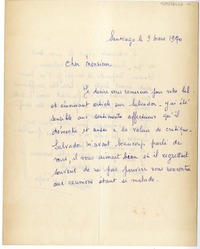 Santiago le 9 mars 1940
Cher Monsieur
Je désire vous remercier pour votre bel
et émouvant article sur Salvador. J'ai été
sensible aux sentiments affectueux qu'il
démontre et aussi à la valeur de critique.
Salvador m'avait beaucoup parlé de
vous, il vous aimait bien et il regrettait
souvent de ne pas pouvoir vous rencontrer
aux réunions étant si malade.